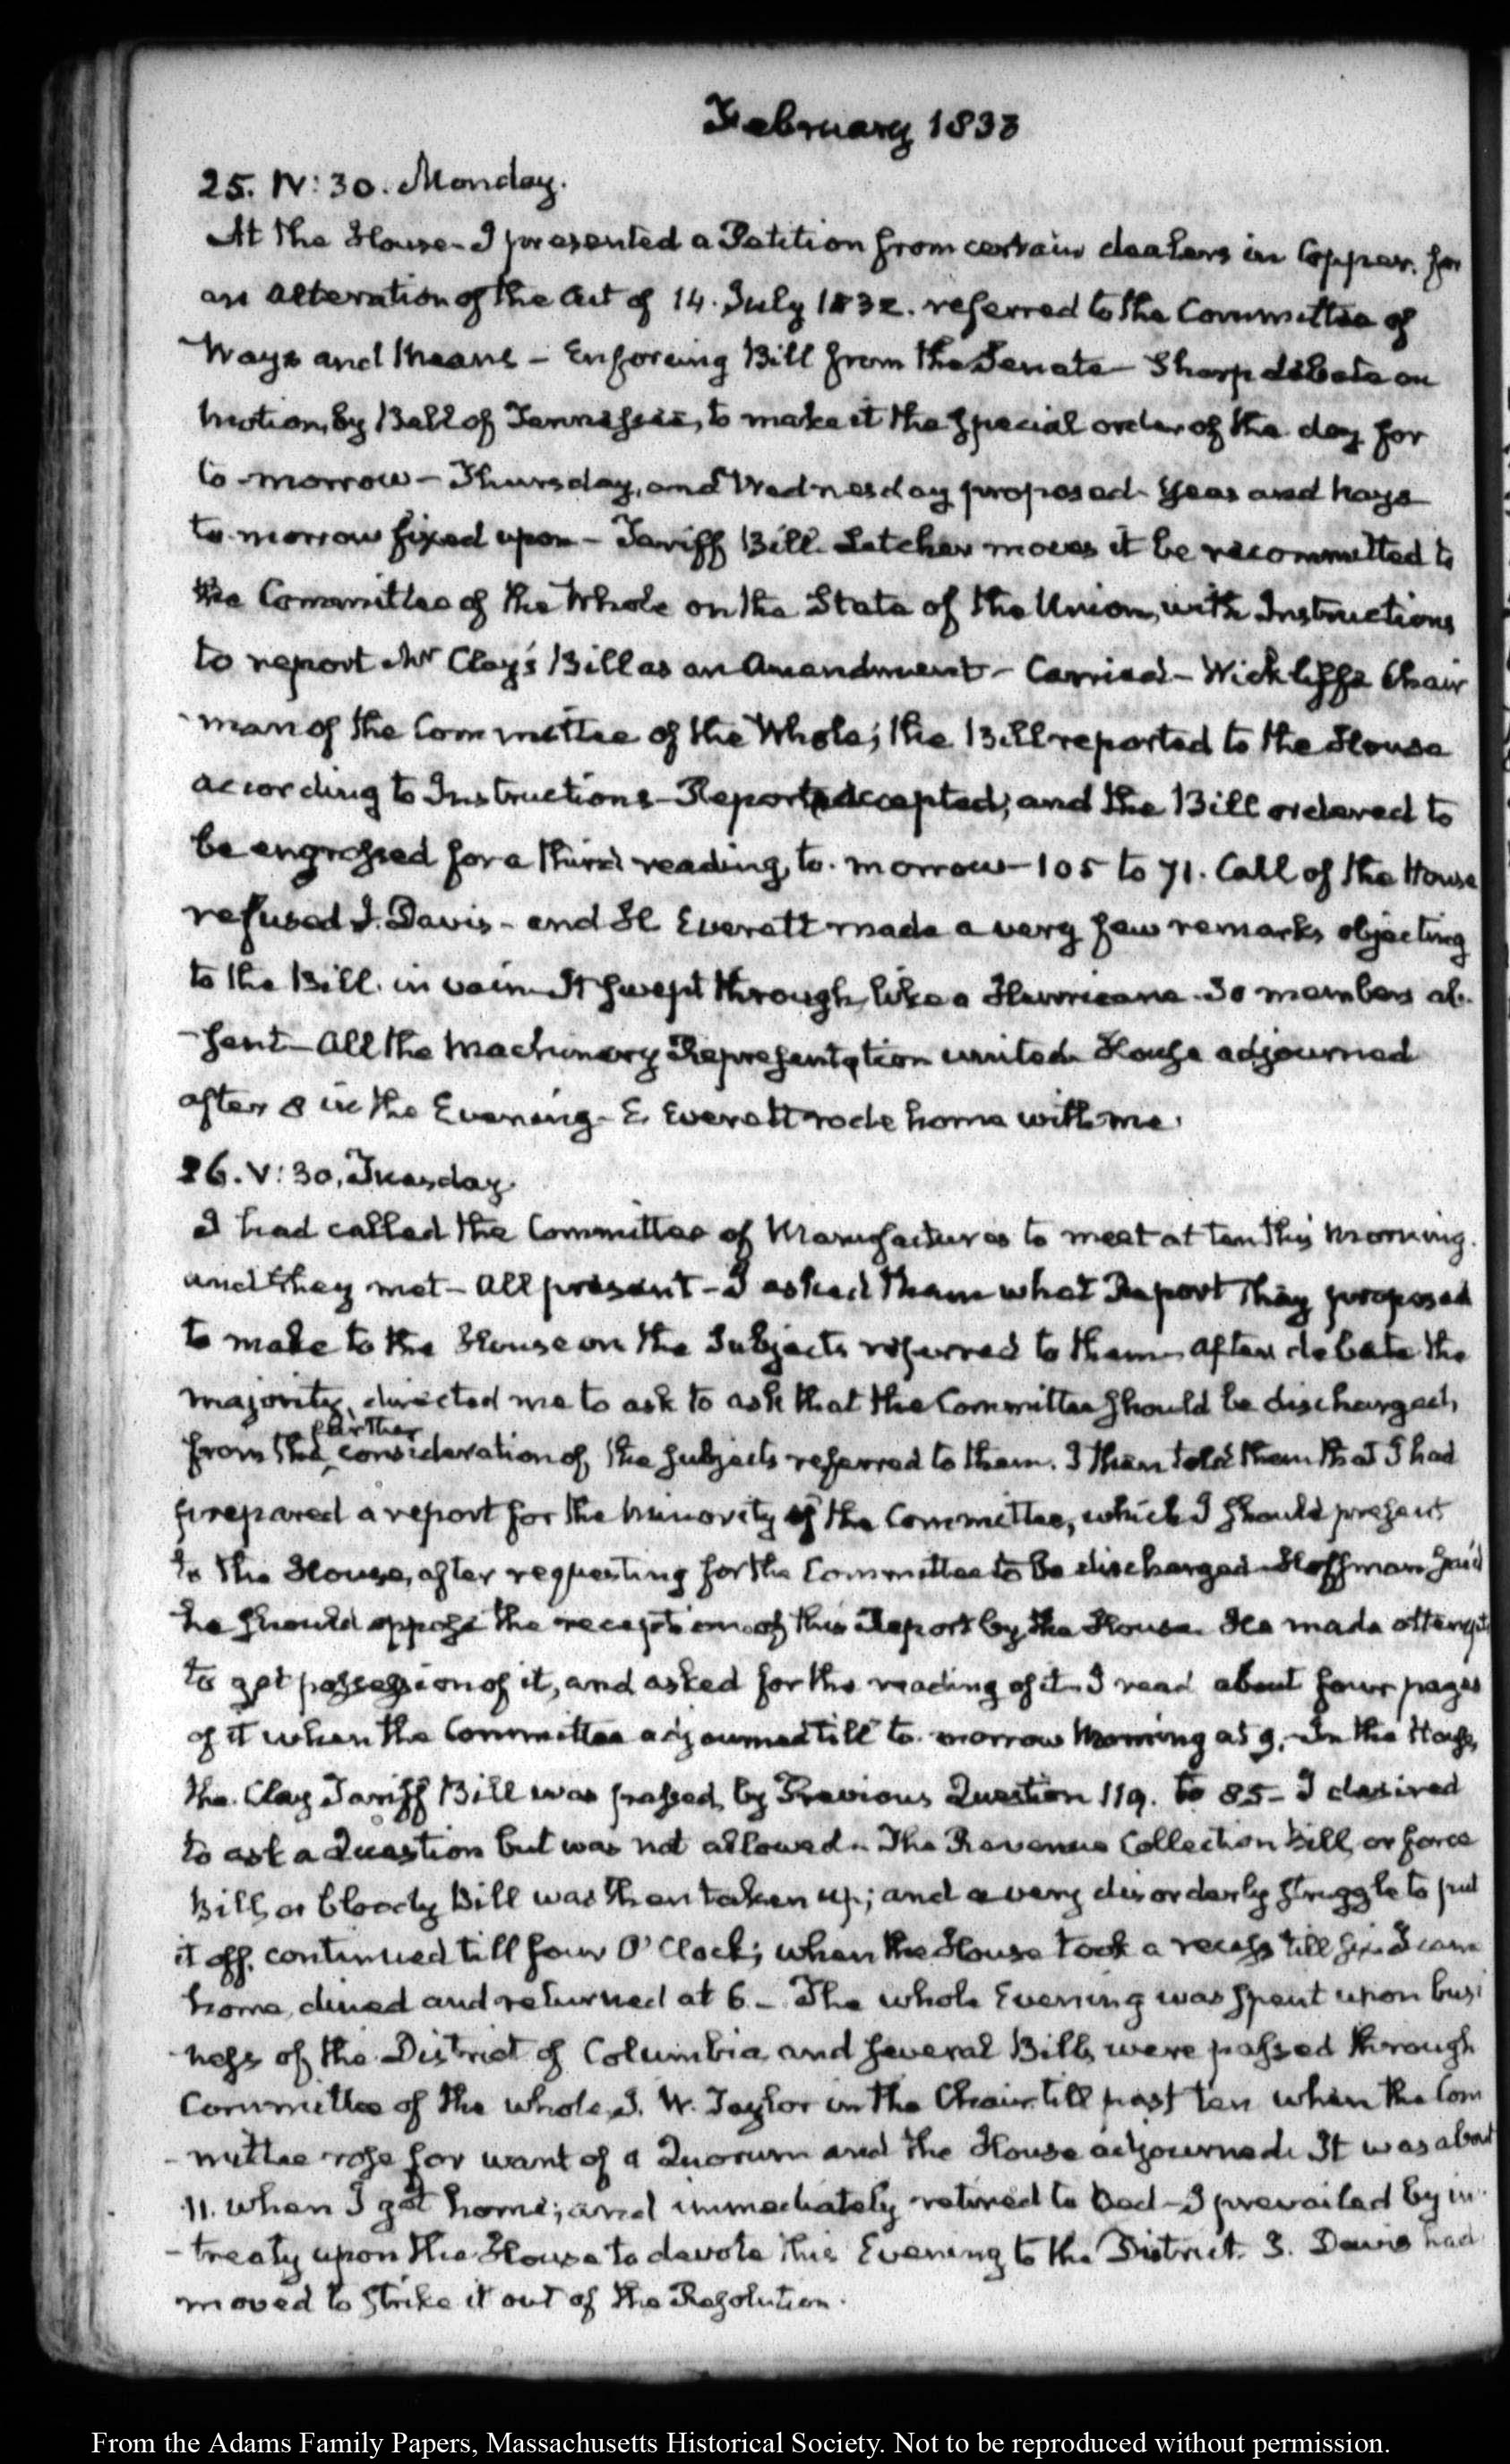 February 1833
25. IV:30. Monday.
At the House. I presented a Petition from certain dealers in Copper. for
an alteration of the Act of 14. July 1832. referred to the Committee of
Ways and Means – Enforcing Bill from the Senate – Sharp debate on
motion, by Bell of Tennessee, to make it the special order of the day for
to-morrow – Thursday, and Wednesday proposed. Yeas and Nays
to-morrow fixed upon – Tariff Bill. Letcher moves it be recommitted to
the Committee of the Whole on the State of the Union, with Instructions
to report Mr Clay's Bill as an Amendment – Carried – Wickliffe Chair
-man of the Committee of the Whole; the Bill reported to the House
according to Instructions – Report accepted; and the Bill ordered to
be engrossed for a third reading, to-morrow – 105 to 71. Call of the House
refused J. Davis – and H. Everett made a very few remarks objecting
to the Bill. in vain. It swept through, like a Hurricane. 30 members ab-
-sent – All the machinery Representation united. House adjourned
after 8 in the Evening – E. Everett rode home with me.
26. V:30. Tuesday.
I had called the Committee of Manufactures to meet at ten this morning.
and they met – All present – I asked them what Report they proposed
to make to the House on the Subjects referred to them. After debate the
majority, directed me to ask to ask that the Committee should be discharged,
farther
from the consideration of the subjects referred to them. I then told them that I had
prepared a report for the minority of the Committee, which I should present
to the House, after requesting for the Committee to be discharged. Hoffman said
he should oppose the reception of this Report by the House. He made attempts
to get possession of it, and asked for the reading of it. I read about four pages
of it when the Committee adjourned till to-morrow Morning at 9. – In the House,
the Clay Tariff Bill was passed, by Previous Question 119. to 85 – I desired
to ask a Question but was not allowed. The Revenue Collection Bill, or force
Bill, or bloody Bill was then taken up; and a very disorderly struggle to put
it off, continued till four O'Clock; when the House took a recess till six. I came
home, dined and returned at 6 – The whole Evening was spent upon busi
-ness of the District of Columbia, and several Bills were passed through
Committee of the whole, J. W. Taylor in the Chair. till past ten when the Com
-mittee rose for want of a Quorum and the House adjourned. It was about
11. when I got home; and immediately retired to bed – I prevailed by in-
-treaty upon the House to devote this Evening to the District. J. Davis had
moved to strike it out of the Resolution.
From the Adams Family Papers, Massachusetts Historical Society. Not to be reproduced without permission.